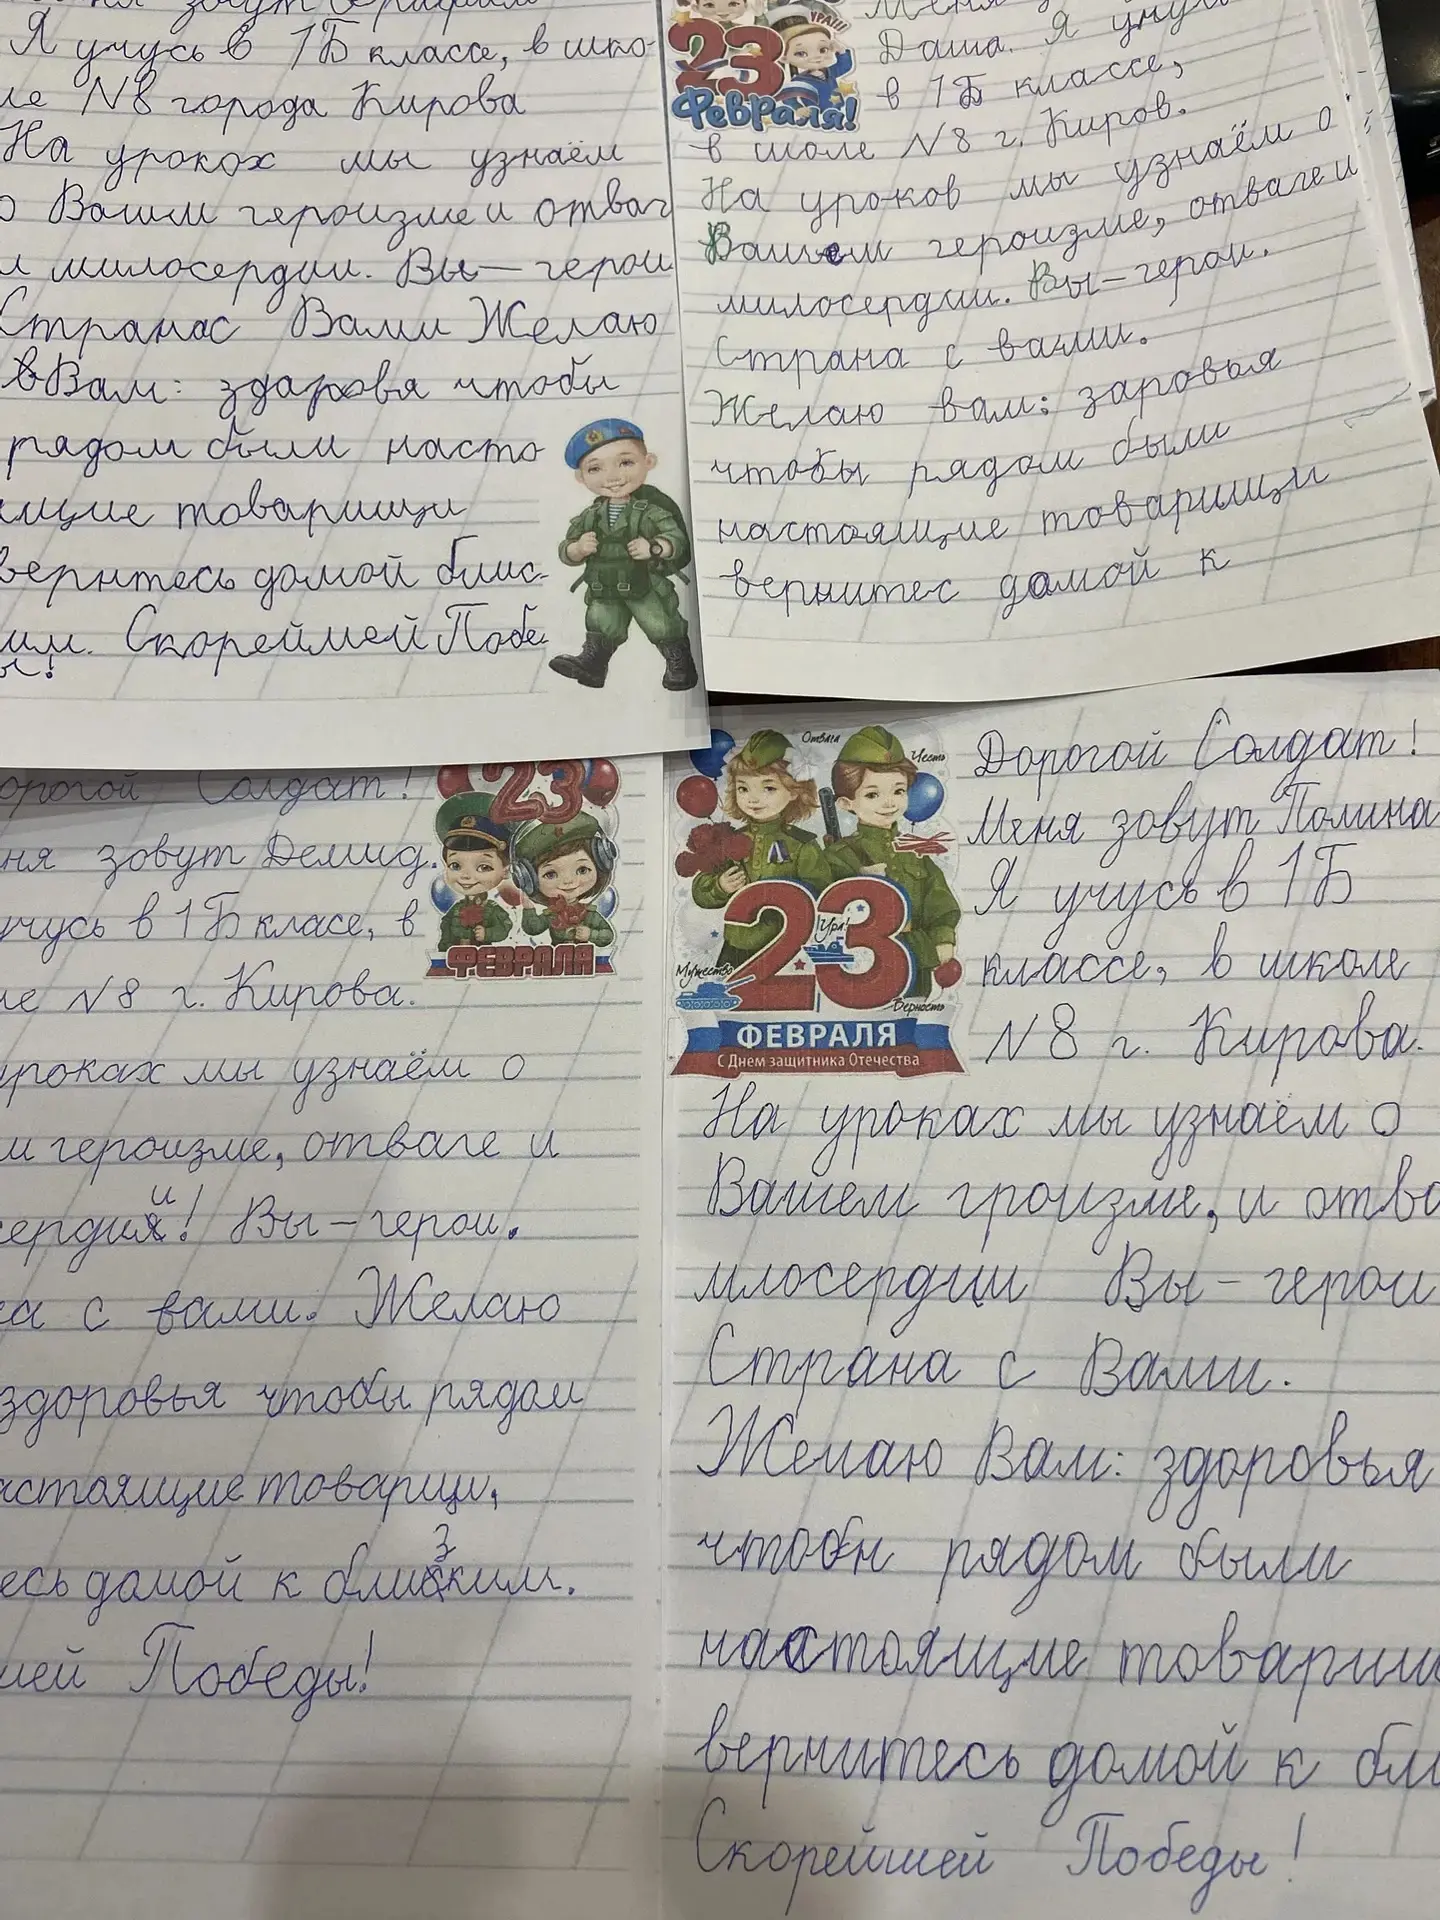 зовут
Я учусь в 1Б классе, в шко-
ле №8 города Кирова
На урокох мы узнаём
о Вашим героизме и отваг
и милосердии. Вы – герои
Странас Вами Желаю
Вам: здаровя чтобы
рядом были насто
ящие товарищи
вернтесь домой блис-
ким. Скореймей Побе-
ы!
УРА!!!
23
Февраля!
Меня
Даша. Я учу
в 1Б классе,
в школе №8 г. Киров.
На уроков мы узнаём о
Вашем героизме, отваге и
милосердии. Вы – герои.
Страна с вами.
Желаю вам: заровья
чтобы рядом были
настоящие товарищи
вернитес домой к
орогой Солдат!
ня зовут Демид.
учусь в 1Б класе, в
ле №8 г. Кирова.
уроках мы узнаём о
м героизме, отваге и
сердии! Вы – герои.
на с вами. Желаю
здоровья чтобы рядом
астоящие товарищи,
есь домой к близким.
шей Победы!
23
ФЕВРАЛЯ
Отвага
Честь
Ура!
Мужество
Верность
23
ФЕВРАЛЯ
С Днем защитника Отечества
Дорогой Солдат!
Меня зовут Полина
Я учусь в 1Б
классе, в школе
№8 г. Кирова.
На уроках мы узнаём о
Вашем гроизме, и отва
млосердии Вы – герои
Страна с Вами.
Желаю Вам: здоровья
чтобы рядом были
настоящие товарищ
вернитесь домой к бли
Скорейшей Победы!